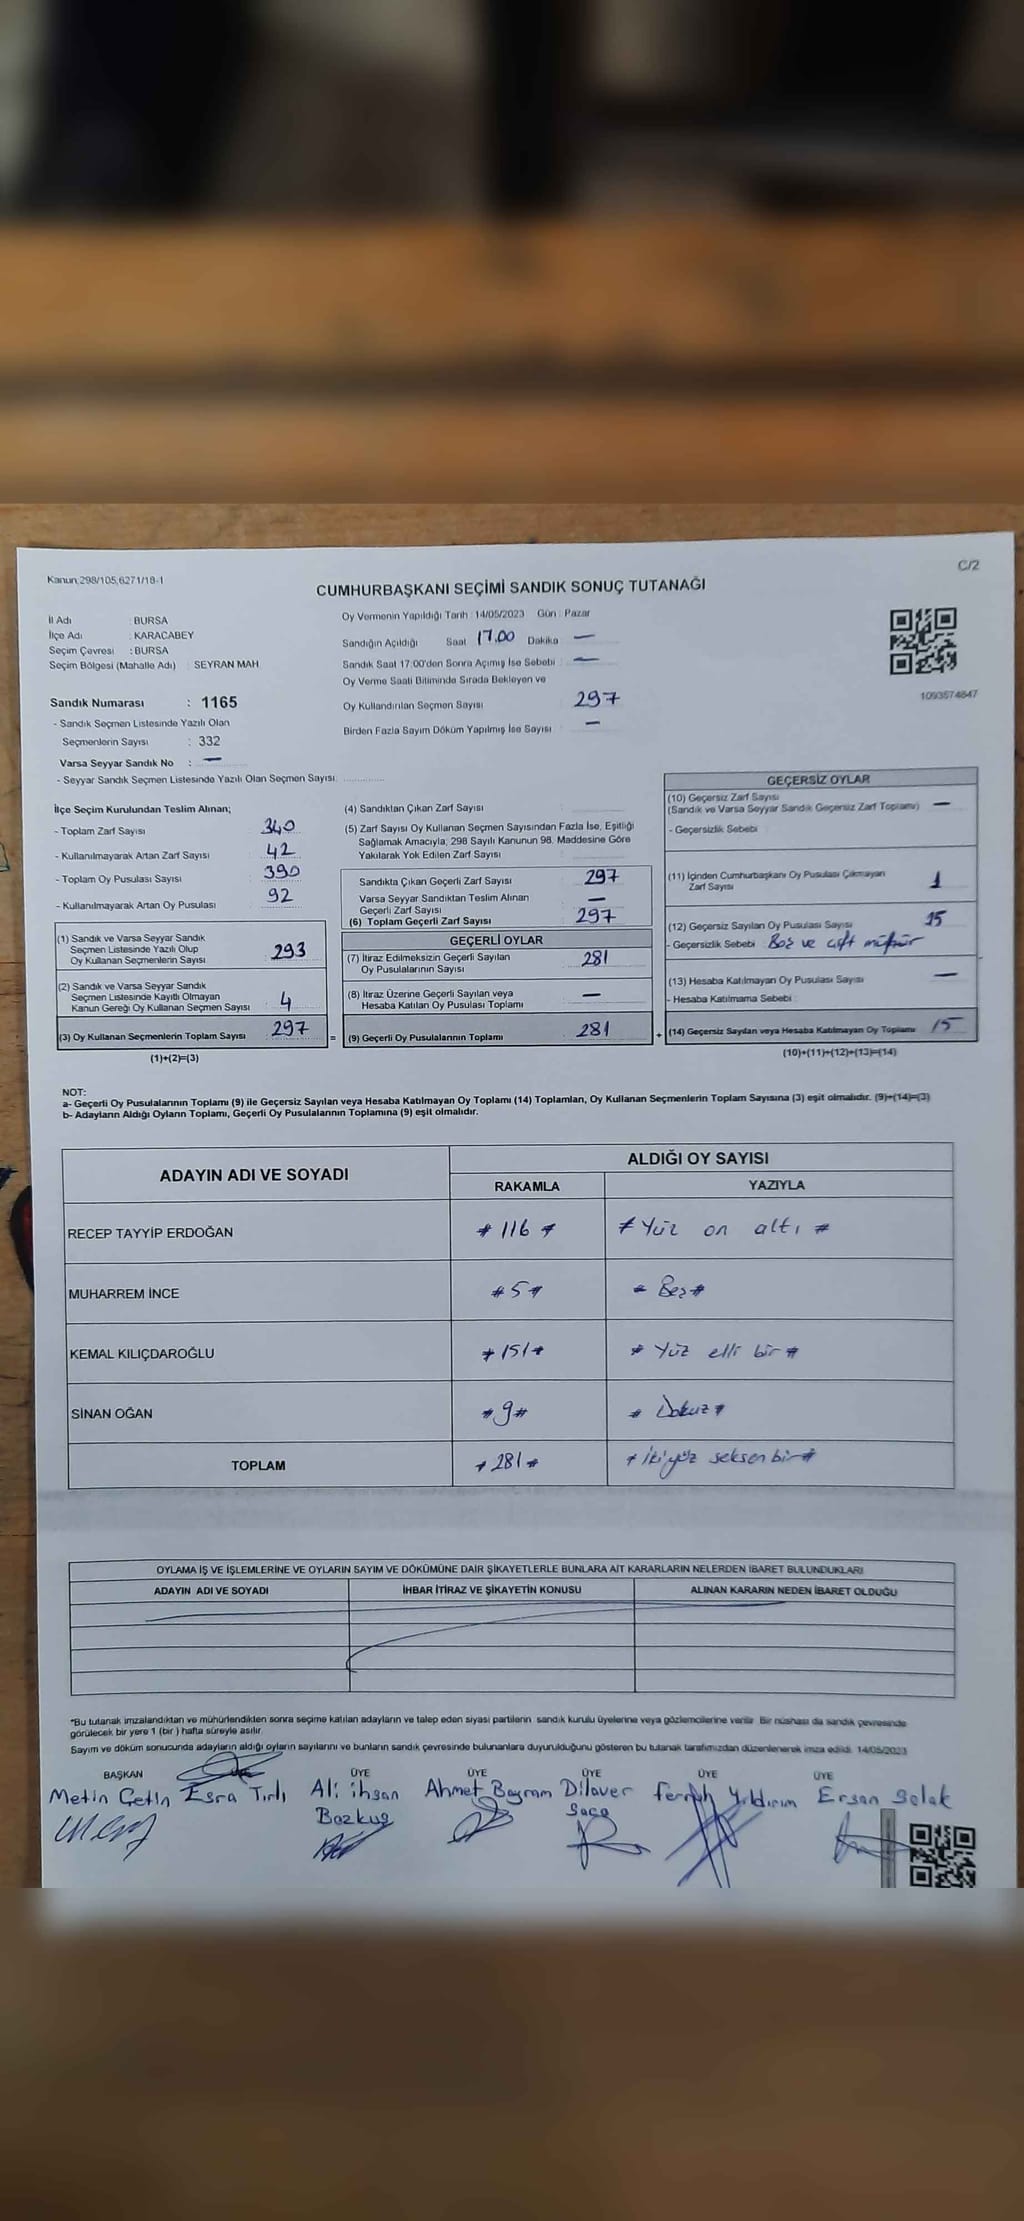 Kanun;298/105,6271/18-1
C/2
CUMHURBAŞKANI SEÇİMİ SANDIK SONUÇ TUTANAĞI
İl Adı : BURSA
İlçe Adı : KARACABEY
Seçim Çevresi : BURSA
Seçim Bölgesi (Mahalle Adı) : SEYRAN MAH
Sandık Numarası : 1165
- Sandık Seçmen Listesinde Yazılı Olan
Seçmenlerin Sayısı : 332
Varsa Seyyar Sandık No : —
- Seyyar Sandık Seçmen Listesinde Yazılı Olan Seçmen Sayısı: ............
Oy Vermenin Yapıldığı Tarih : 14/05/2023 Gün : Pazar
Sandığın Açıldığı Saat 17.00 Dakika —
Sandık Saat 17:00'den Sonra Açımış İse Sebebi : —
Oy Verme Saati Bitiminde Sırada Bekleyen ve
Oy Kullandırılan Seçmen Sayısı 297
Birden Fazla Sayım Döküm Yapılmış İse Sayısı : —
1093574847
İlçe Seçim Kurulundan Teslim Alınan;
- Toplam Zarf Sayısı 340
- Kullanılmayarak Artan Zarf Sayısı 42
- Toplam Oy Pusulası Sayısı 390
- Kullanılmayarak Artan Oy Pusulası 92
(1) Sandık ve Varsa Seyyar Sandık
Seçmen Listesinde Yazılı Olup
Oy Kullanan Seçmenlerin Sayısı 293
(2) Sandık ve Varsa Seyyar Sandık
Seçmen Listesinde Kayıtlı Olmayan
Kanun Gereği Oy Kullanan Seçmen Sayısı 4
(3) Oy Kullanan Seçmenlerin Toplam Sayısı 297
(1)+(2)=(3)
(4) Sandıktan Çıkan Zarf Sayısı
(5) Zarf Sayısı Oy Kullanan Seçmen Sayısından Fazla İse, Eşitliği
Sağlamak Amacıyla; 298 Sayılı Kanunun 98. Maddesine Göre
Yakılarak Yok Edilen Zarf Sayısı
Sandıkta Çıkan Geçerli Zarf Sayısı 297
Varsa Seyyar Sandıktan Teslim Alınan
Geçerli Zarf Sayısı —
(6) Toplam Geçerli Zarf Sayısı 297
GEÇERLİ OYLAR
(7) İtiraz Edilmeksizin Geçerli Sayılan
Oy Pusulalarının Sayısı 281
(8) İtiraz Üzerine Geçerli Sayılan veya
Hesaba Katılan Oy Pusulası Toplamı —
= (9) Geçerli Oy Pusulalarının Toplamı 281
GEÇERSİZ OYLAR
(10) Geçersiz Zarf Sayısı
(Sandık ve Varsa Seyyar Sandık Geçersiz Zarf Toplamı) —
- Geçersizlik Sebebi
(11) İçinden Cumhurbaşkanı Oy Pusulası Çıkmayan
Zarf Sayısı 1
(12) Geçersiz Sayılan Oy Pusulası Sayısı 15
- Geçersizlik Sebebi Boş ve çift mühür
(13) Hesaba Katılmayan Oy Pusulası Sayısı —
- Hesaba Katılmama Sebebi :
+ (14) Geçersiz Sayılan veya Hesaba Katılmayan Oy Toplamı 15
(10)+(11)+(12)+(13)=(14)
NOT:
a- Geçerli Oy Pusulalarının Toplamı (9) ile Geçersiz Sayılan veya Hesaba Katılmayan Oy Toplamı (14) Toplamları, Oy Kullanan Seçmenlerin Toplam Sayısına (3) eşit olmalıdır. (9)+(14)=(3)
b- Adayların Aldığı Oyların Toplamı, Geçerli Oy Pusulalarının Toplamına (9) eşit olmalıdır.
ADAYIN ADI VE SOYADI
ALDIĞI OY SAYISI
RAKAMLA YAZIYLA
RECEP TAYYİP ERDOĞAN # 116 # # Yüz on altı #
MUHARREM İNCE #5# # Beş #
KEMAL KILIÇDAROĞLU #151# # Yüz elli bir #
SİNAN OĞAN #9# # Dokuz #
TOPLAM #281# # İkiyüz seksen bir #
OYLAMA İŞ VE İŞLEMLERİNE VE OYLARIN SAYIM VE DÖKÜMÜNE DAİR ŞİKAYETLERLE BUNLARA AİT KARARLARIN NELERDEN İBARET BULUNDUKLARI
ADAYIN ADI VE SOYADI İHBAR İTİRAZ VE ŞİKAYETİN KONUSU ALINAN KARARIN NEDEN İBARET OLDUĞU
*Bu tutanak imzalandıktan ve mühürlendikten sonra seçime katılan adayların ve talep eden siyasi partilerin sandık kurulu üyelerine veya gözlemcilerine verilir. Bir nüshası da sandık çevresinde
görülecek bir yere 1 (bir ) hafta süreyle asılır.
Sayım ve döküm sonucunda adayların aldığı oyların sayılarını ve bunların sandık çevresinde bulunanlara duyurulduğunu gösteren bu tutanak tarafımızdan düzenlenerek imza edildi. 14/05/2023
BAŞKAN ÜYE ÜYE ÜYE ÜYE ÜYE
Metin Çetin Esra Tırlı Ali ihsan Ahmet Bayram Dilaver Yıldırım Ersan Solak
Bozkuş